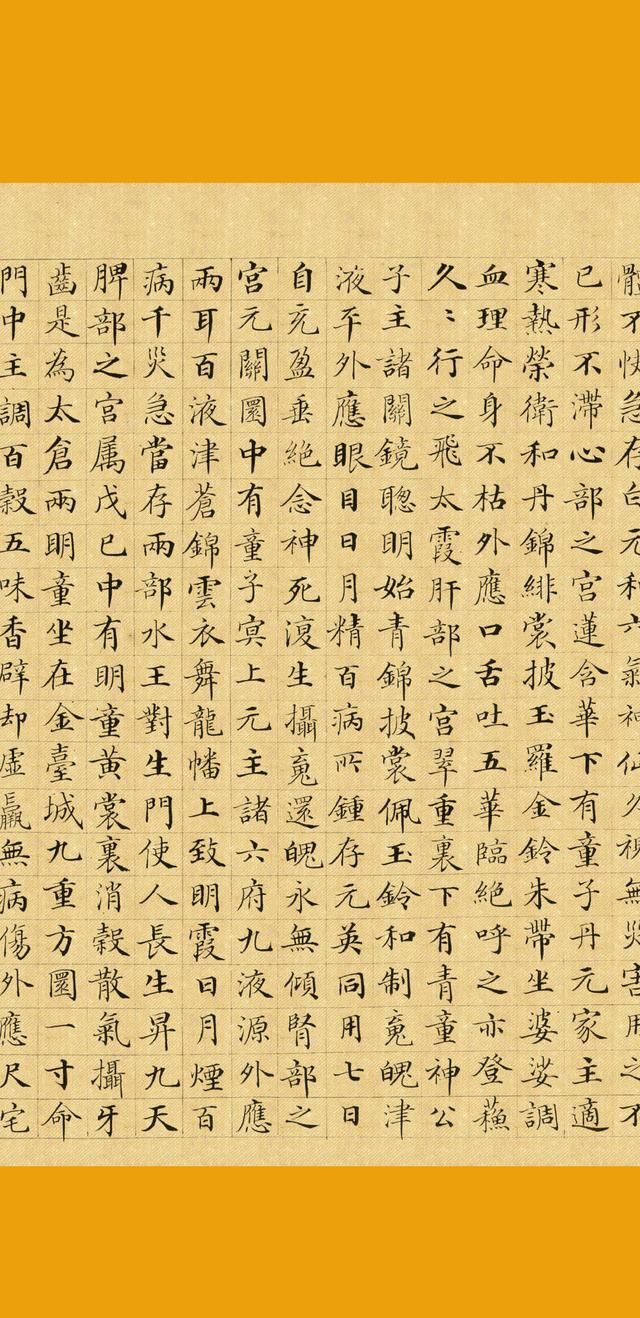 體不快急存白元和六氣神仙久視無災害用之不
已形不滯心部之宮蓮含華下有童子丹元家主適
寒熱榮衛和丹錦緋裳披玉羅金鈴朱帶坐婆娑調
血理命身不枯外應口舌吐五華臨絕呼之亦登蘓
久〻行之飛太霞肝部之宮翠重裏下有青童神公
子主諸關鏡聰明始青錦披裳佩玉鈴和制䰟魄津
液平外應眼目日月精百病所鍾存元英同用七日
自充盈垂絕念神死復生攝䰟還魄永無傾腎部之
宮元關圓中有童子冥上元主諸六府九液源外應
兩耳百液津蒼錦雲衣舞龍幡上致明霞日月煙百
病千災急當存兩部水王對生門使人長生昇九天
脾部之宮属戊巳中有明童黃裳裏消穀散氣攝牙
齒是為太倉兩明童坐在金臺城九重方圓一寸命
門中主調百穀五味香辟却虛羸無病傷外應尺宅